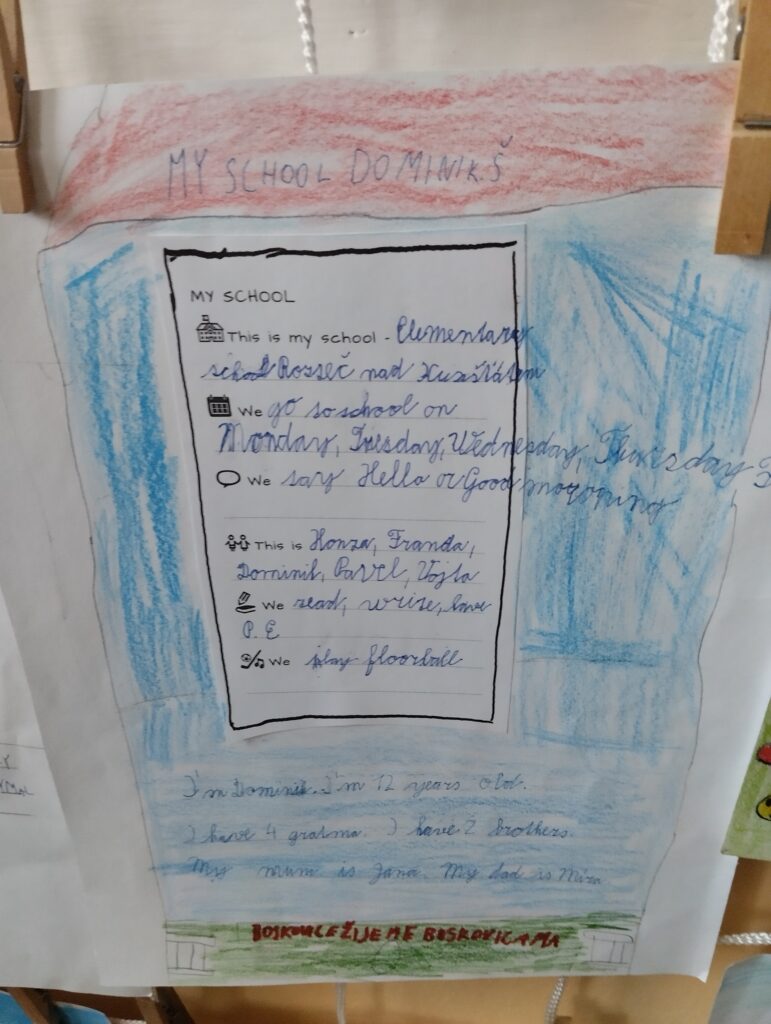 MY SCHOOL DOMINIK Š
MY SCHOOL
This is my school - Elementary
school Rozseč nad Kunštátem
We go to school on
Monday, Tuesday, Wednesday, Thursday
We say Hello or Good moroning
This is Honza, Franda,
Dominik, Pavel, Vojta
We read, write, have
P. E
We play floorball
I'm Dominik. I'm 12 years old.
I have 4 gradma. I have 2 brothers.
My mum is Jana. My dad is Míra
BOSKOVICE ŽIJEME BOSKOVICAMA